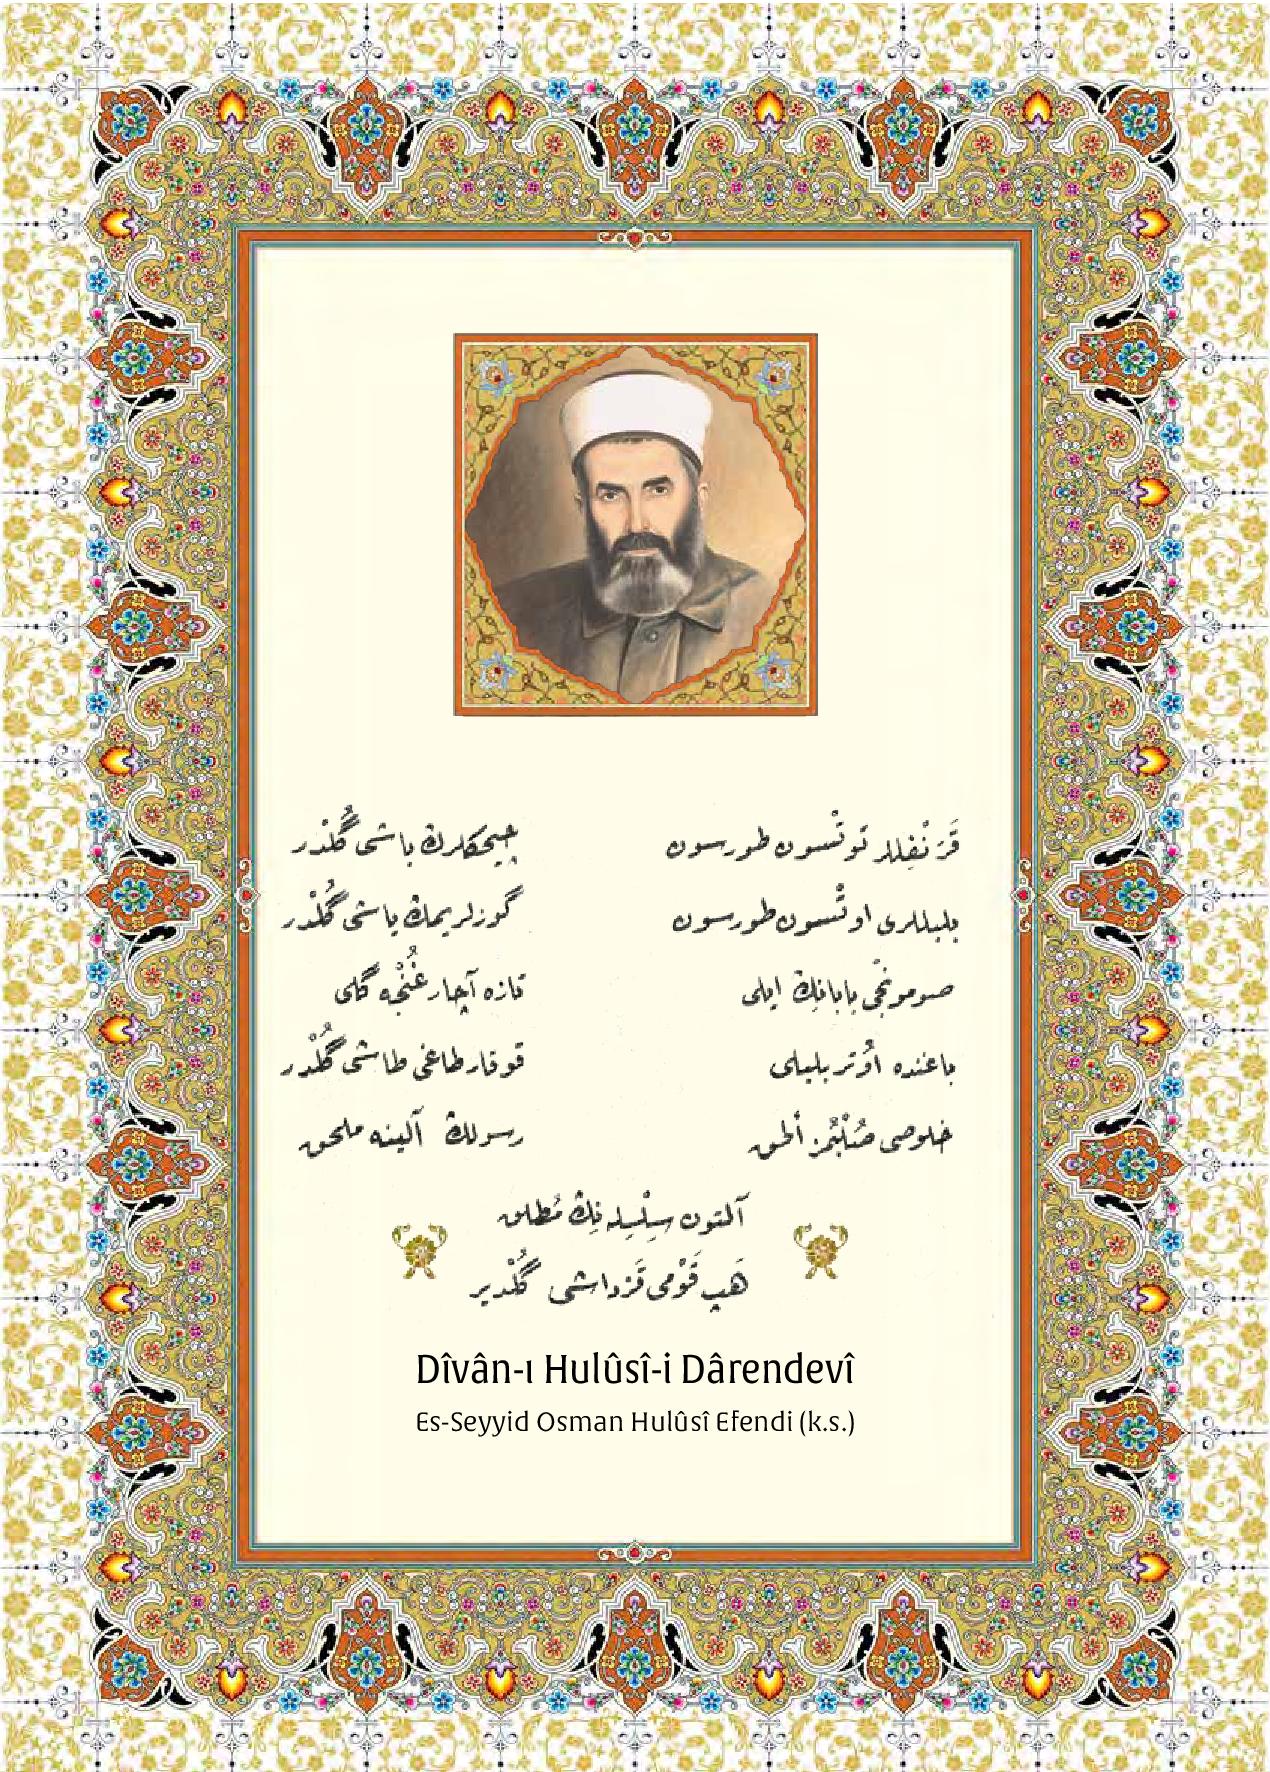 قَرَنْفِللر توتْسون طورسون چیچكلرڭ باشی گُلْدر
بلبللری اوتْسون طورسون گوزلریمڭ یاشی گُلْدر
صومونجی بابانڭ ایلی تازه آچار غُنْجه گلی
باغنده اوُتر بلبلی قوقار طاغی طاشی گُلْدر
خلوصی صُلْبُمز ألحق رسولڭ آلینه ملحق
آلتون سِلْسِله نِڭ مُطلق
هَپ قَوْمی قَرْداشی گُلْدیر
Dîvân-ı Hulûsî-i Dârendevî
Es-Seyyid Osman Hulûsî Efendi (k.s.)